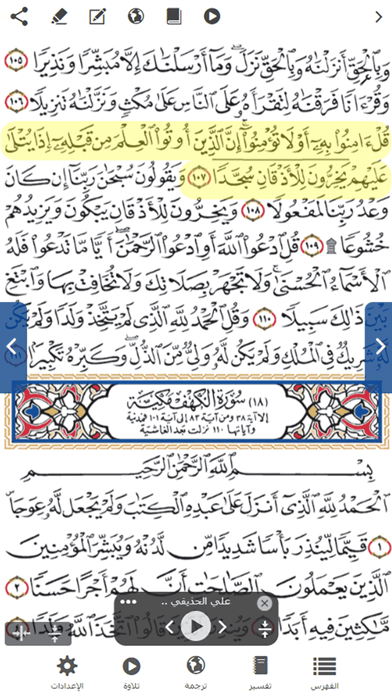 وَبِالْحَقِّ أَنزَلْنَاهُ وَبِالْحَقِّ نَزَلَ ۗ وَمَا أَرْسَلْنَاكَ إِلَّا مُبَشِّرًا وَنَذِيرًا ١٠٥
وَقُرْءَانًا فَرَقْنَاهُ لِتَقْرَأَهُ عَلَى النَّاسِ عَلَى مُكْثٍ وَنَزَّلْنَاهُ تَنزِيلًا ١٠٦
قُلْ ءَامِنُوا بِهِ أَوْ لَا تُؤْمِنُوا إِنَّ الَّذِينَ أُوتُوا الْعِلْمَ مِن قَبْلِهِ إِذَا يُتْلَى
عَلَيْهِمْ يَخِرُّونَ لِلْأَذْقَانِ سُجَّدًا ١٠٧ وَيَقُولُونَ سُبْحَانَ رَبِّنَا إِن كَانَ
وَعْدُ رَبِّنَا لَمَفْعُولًا ١٠٨ وَيَخِرُّونَ لِلْأَذْقَانِ يَبْكُونَ وَيَزِيدُهُمْ
خُشُوعًا ۩ ١٠٩ قُلِ ادْعُوا اللَّهَ أَوِ ادْعُوا الرَّحْمَٰنَ أَيًّا مَّا تَدْعُوا فَلَهُ
الْأَسْمَاءُ الْحُسْنَى وَلَا تَجْهَرْ بِصَلَاتِكَ وَلَا تُخَافِتْ بِهَا وَابْتَغِ
بَيْنَ ذَٰلِكَ سَبِيلًا ١١٠ وَقُلِ الْحَمْدُ لِلَّهِ الَّذِي لَمْ يَتَّخِذْ وَلَدًا وَلَمْ يَكُن
لَّهُ شَرِيكٌ فِي الْمُلْكِ وَلَمْ يَكُن لَّهُ وَلِيٌّ مِّنَ الذُّلِّ وَكَبِّرْهُ تَكْبِيرًا
(١٨) سُورَةُ الْكَهْفِ مَكِّيَّة
إلا آية ٣٨ ومن آية ٨٣ إلى آية ١٠١ فمدنية
وآياتها ١١٠ نزلت بعد الغاشية
بِسْمِ اللَّهِ الرَّحْمَٰنِ الرَّحِيمِ
الْحَمْدُ لِلَّهِ الَّذِي أَنزَلَ عَلَى عَبْدِهِ الْكِتَابَ وَلَمْ يَجْعَل لَّهُ عِوَجًا
١ قَيِّمًا لِّيُنذِرَ بَأْسًا شَدِيدًا مِّن لَّدُنْهُ وَيُبَشِّرَ الْمُؤْمِنِينَ
الَّذِينَ يَعْمَلُونَ الصَّالِحَاتِ أَنَّ لَهُمْ أَجْرًا حَسَنًا ٢
مَّاكِثِينَ فِيهِ أَبَدًا ٣ وَيُنذِرَ الَّذِينَ قَالُوا اتَّخَذَ اللَّهُ وَلَدًا
علي الحذيفي ..
الفهرس
تفسير
ترجمة
تلاوة
الإعدادات